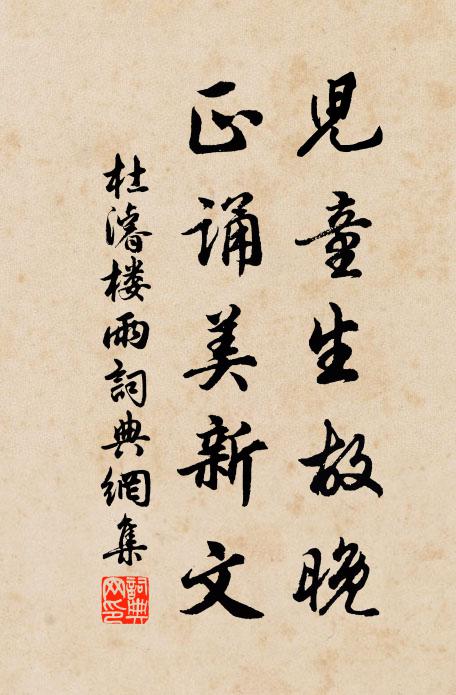 兒童生故晚
正誦美新文
杜濬樓雨詞典網集
詞典網印